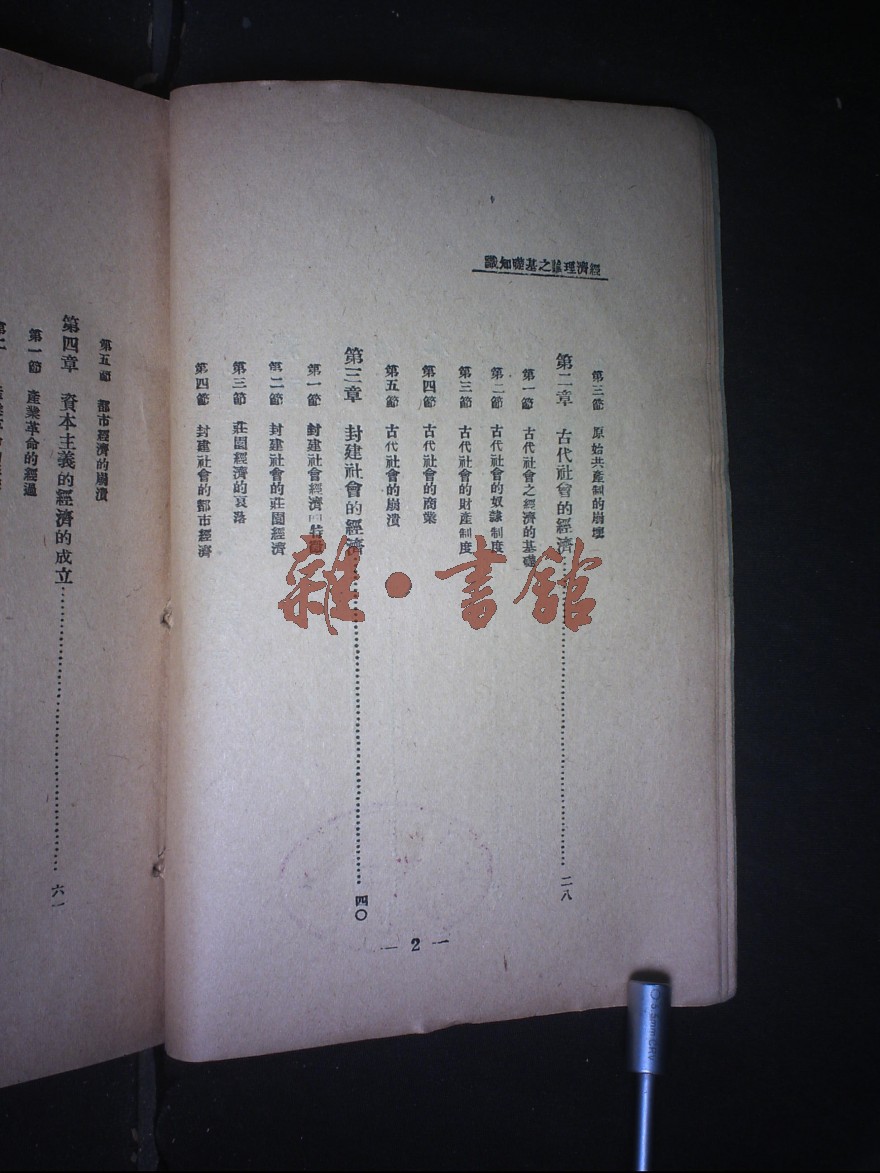 經濟理論之基礎知識
第三節 原始共產制的崩壞
第二章 古代社會的經濟……二八
第一節 古代社會之經濟的基礎
第二節 古代社會的奴隸制度
第三節 古代社會的財產制度
第四節 古代社會的商業
第五節 古代社會的崩潰
第三章 封建社會的經濟……四〇
第一節 封建社會經濟 特徵
第二節 封建社會的莊園經濟
第三節 莊園經濟的衰落
第四節 封建社會的都市經濟
— 2 —
第五節 都市經濟的崩潰
第四章 資本主義的經濟的成立……六一
第一節 產業革命的經過
雜·書館